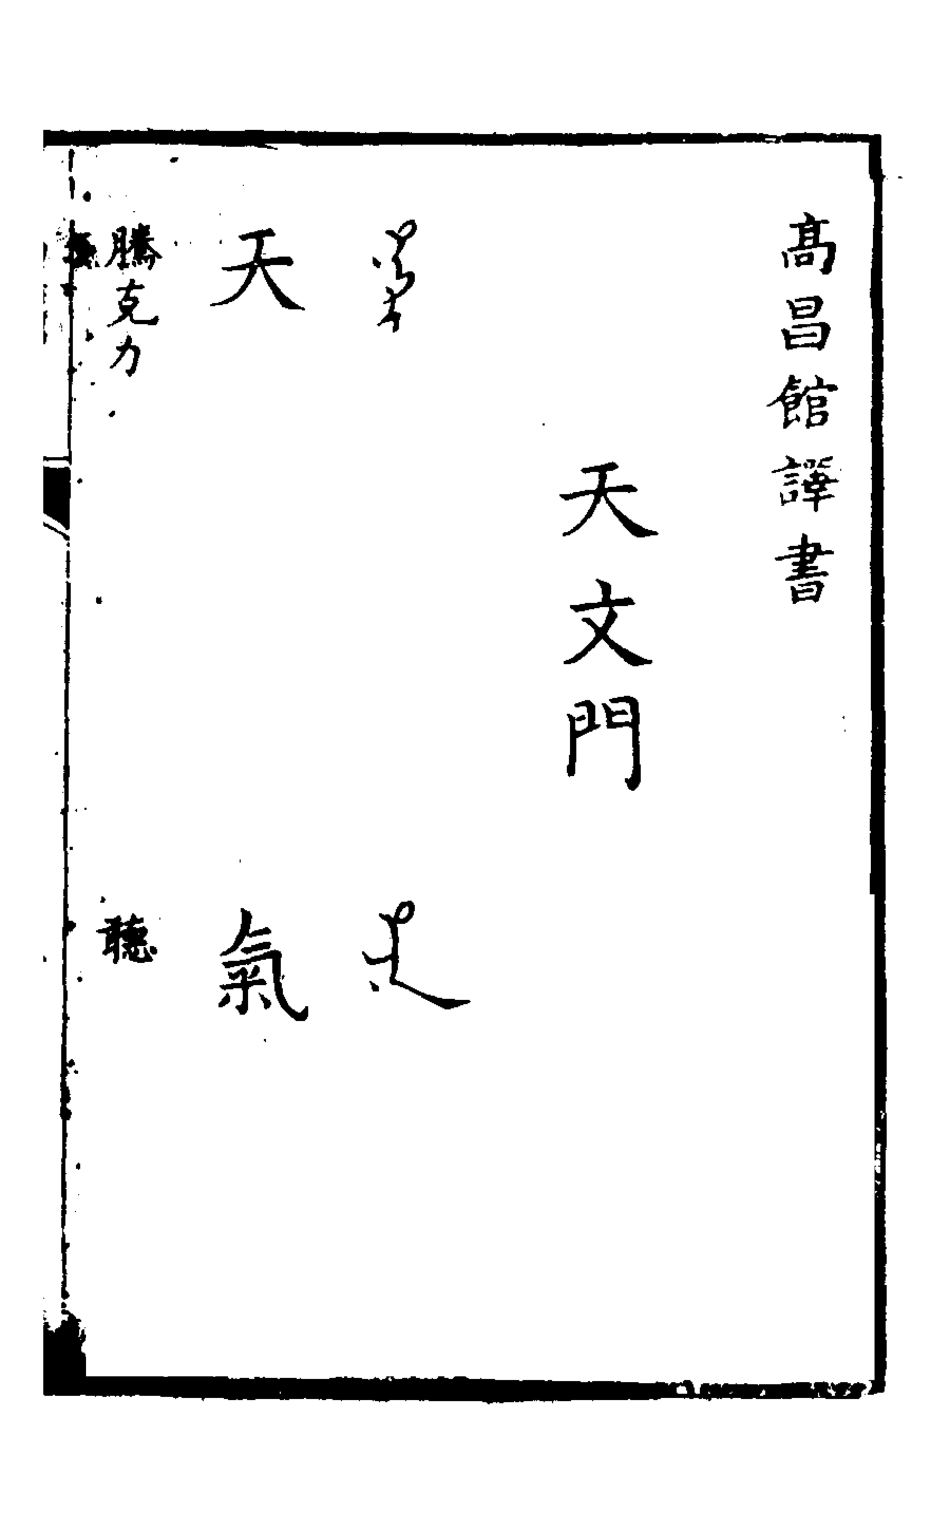 高昌館譯書
天文門
天
騰克力
氣
聽